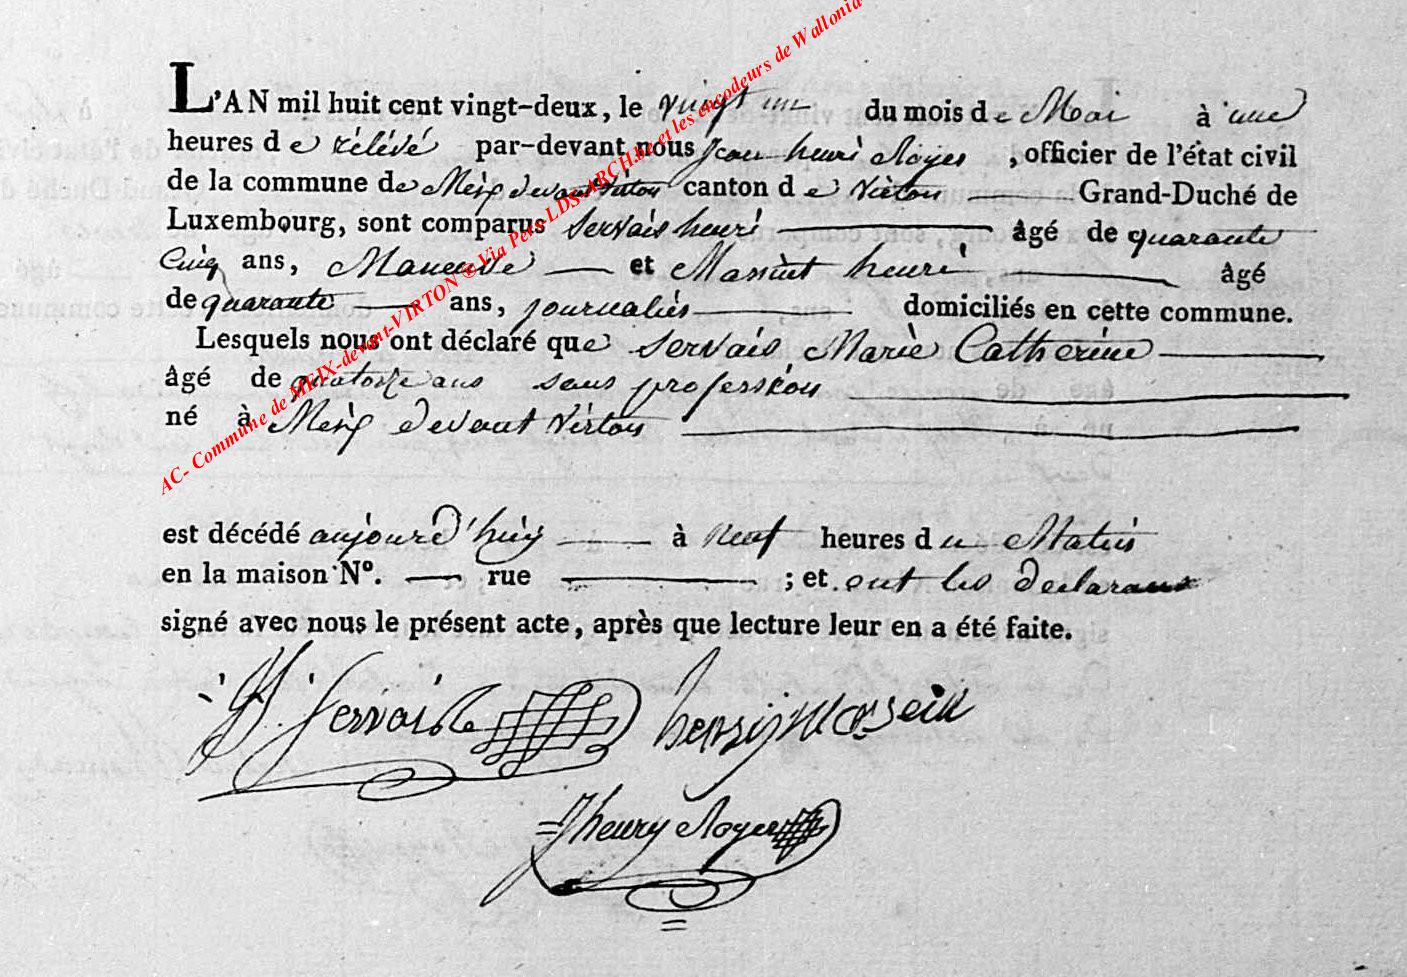 L'AN mil huit cent vingt-deux, le vingt un du mois de Mai à une
heures de rélévé par-devant nous Jean henri Royer, officier de l'état civil
de la commune de Meix devant virton canton de virton Grand-Duché de
Luxembourg, sont comparus Servais henri âgé de quarante
Cinq ans, Maneuvre et Massiut henri âgé
de quarante ans, journaliés domiciliés en cette commune.
Lesquels nous ont déclaré que Servais Marie Catherine
âgé de quatorze ans sans profession
né à Meix devant Virton
est décédé aujourd'huy à neuf heures du Matin
en la maison N°. rue ; et ont les declarans
signé avec nous le présent acte, après que lecture leur en a été faite.
H. Servais
henry
Jhenry Royer
AC- Commune de MEIX-devant-VIRTON ® Via Pers-LDS-ARCH.be et les encodeurs de Wallonia